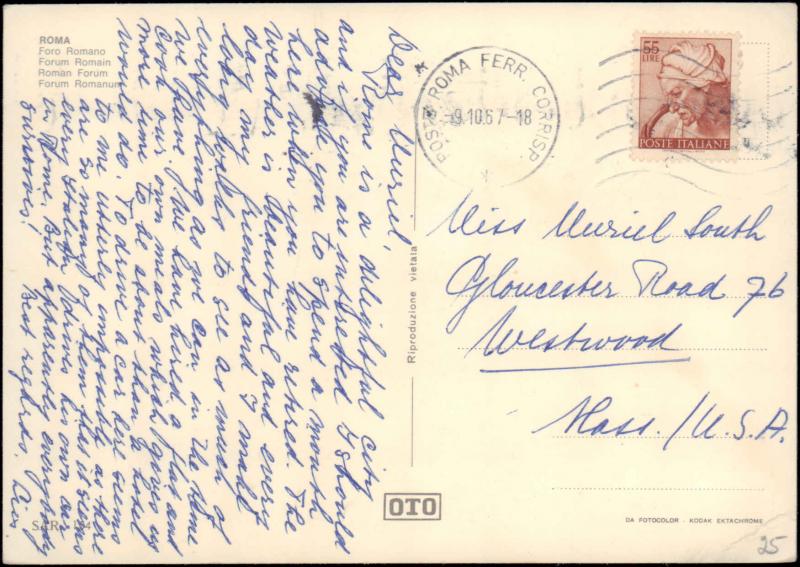 ROMA
Foro Romano
Forum Romain
Roman Forum
Forum Romanum
Dear Muriel,
Rome is a delightful city
and if you are interested I should
advise you to spend a month
here when you have retired. The
weather is beautiful and every
day my friend and I walk
long walks to see as much of
everything as we can in the time
we have. We have hired a flat and
cook our own meals what gives us
more time to be about than a hotel
would do. To drive a car here seems
to me utterly impossible as there
are so many of them that it seems
every Italian drives his own car
in Rome. But apparently everybody
survives!
Best regards,
POSTE ROMA FERR. CORRISP
-9.10.67-18
55
LIRE
POSTE ITALIANE
Miss Muriel South
Gloucester Road 76
Westwood
Mass. / U.S.A.
Riproduzione vietata
OTO
S.A.R. - 194
DA FOTOCOLOR - KODAK EKTACHROME
25